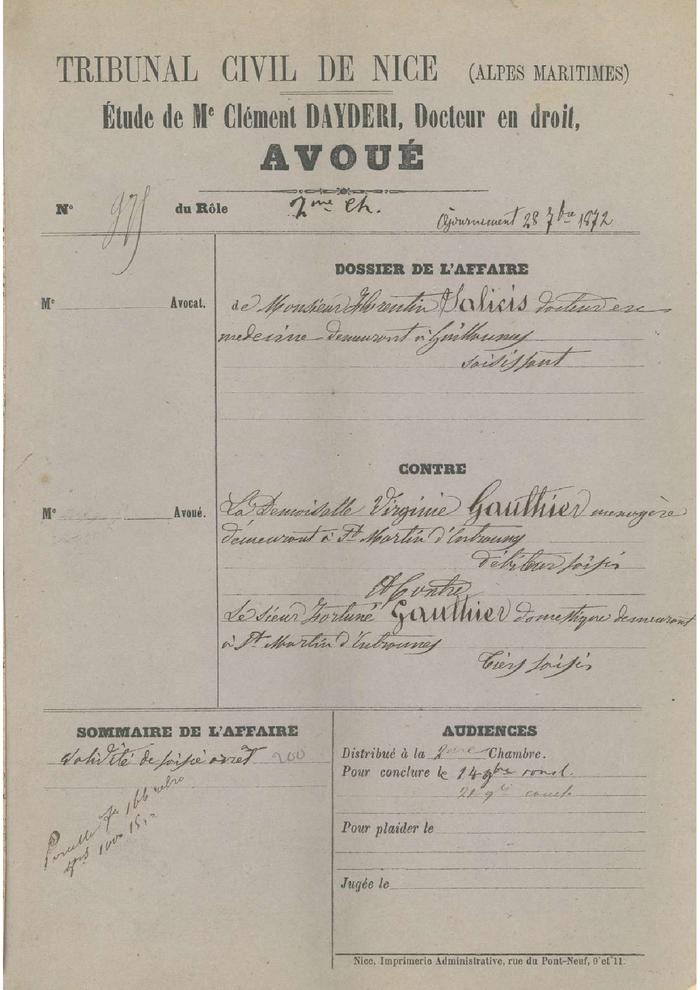 TRIBUNAL CIVIL DE NICE (ALPES MARITIMES)
Étude de Me Clément DAYDERI, Docteur en droit,
AVOUÉ
N° 975 du Rôle 2me Ch. Ajournement 28 7bre 1872
DOSSIER DE L'AFFAIRE
Me Avocat.
de Monsieur Florentin Salicis docteur en
medecine demeurant à Guillaumes
saisissant
CONTRE
Me Avoué.
La Demoiselle Virginie Gauthier menagère
demeurant à St Martin d'Entraunes
débiteur saisie
Et Contre
Le sieur Fortuné Gauthier domestique demeurant
à St Martin d'Entraunes
tiers saisi
SOMMAIRE DE L'AFFAIRE
Validité de saisie arrêt 200
AUDIENCES
Distribué à la 2me Chambre.
Pour conclure le 14 9bre
21 9bre
Pour plaider le
Jugée le
Nice, Imprimerie Administrative, rue du Pont-Neuf, 9 et 11.